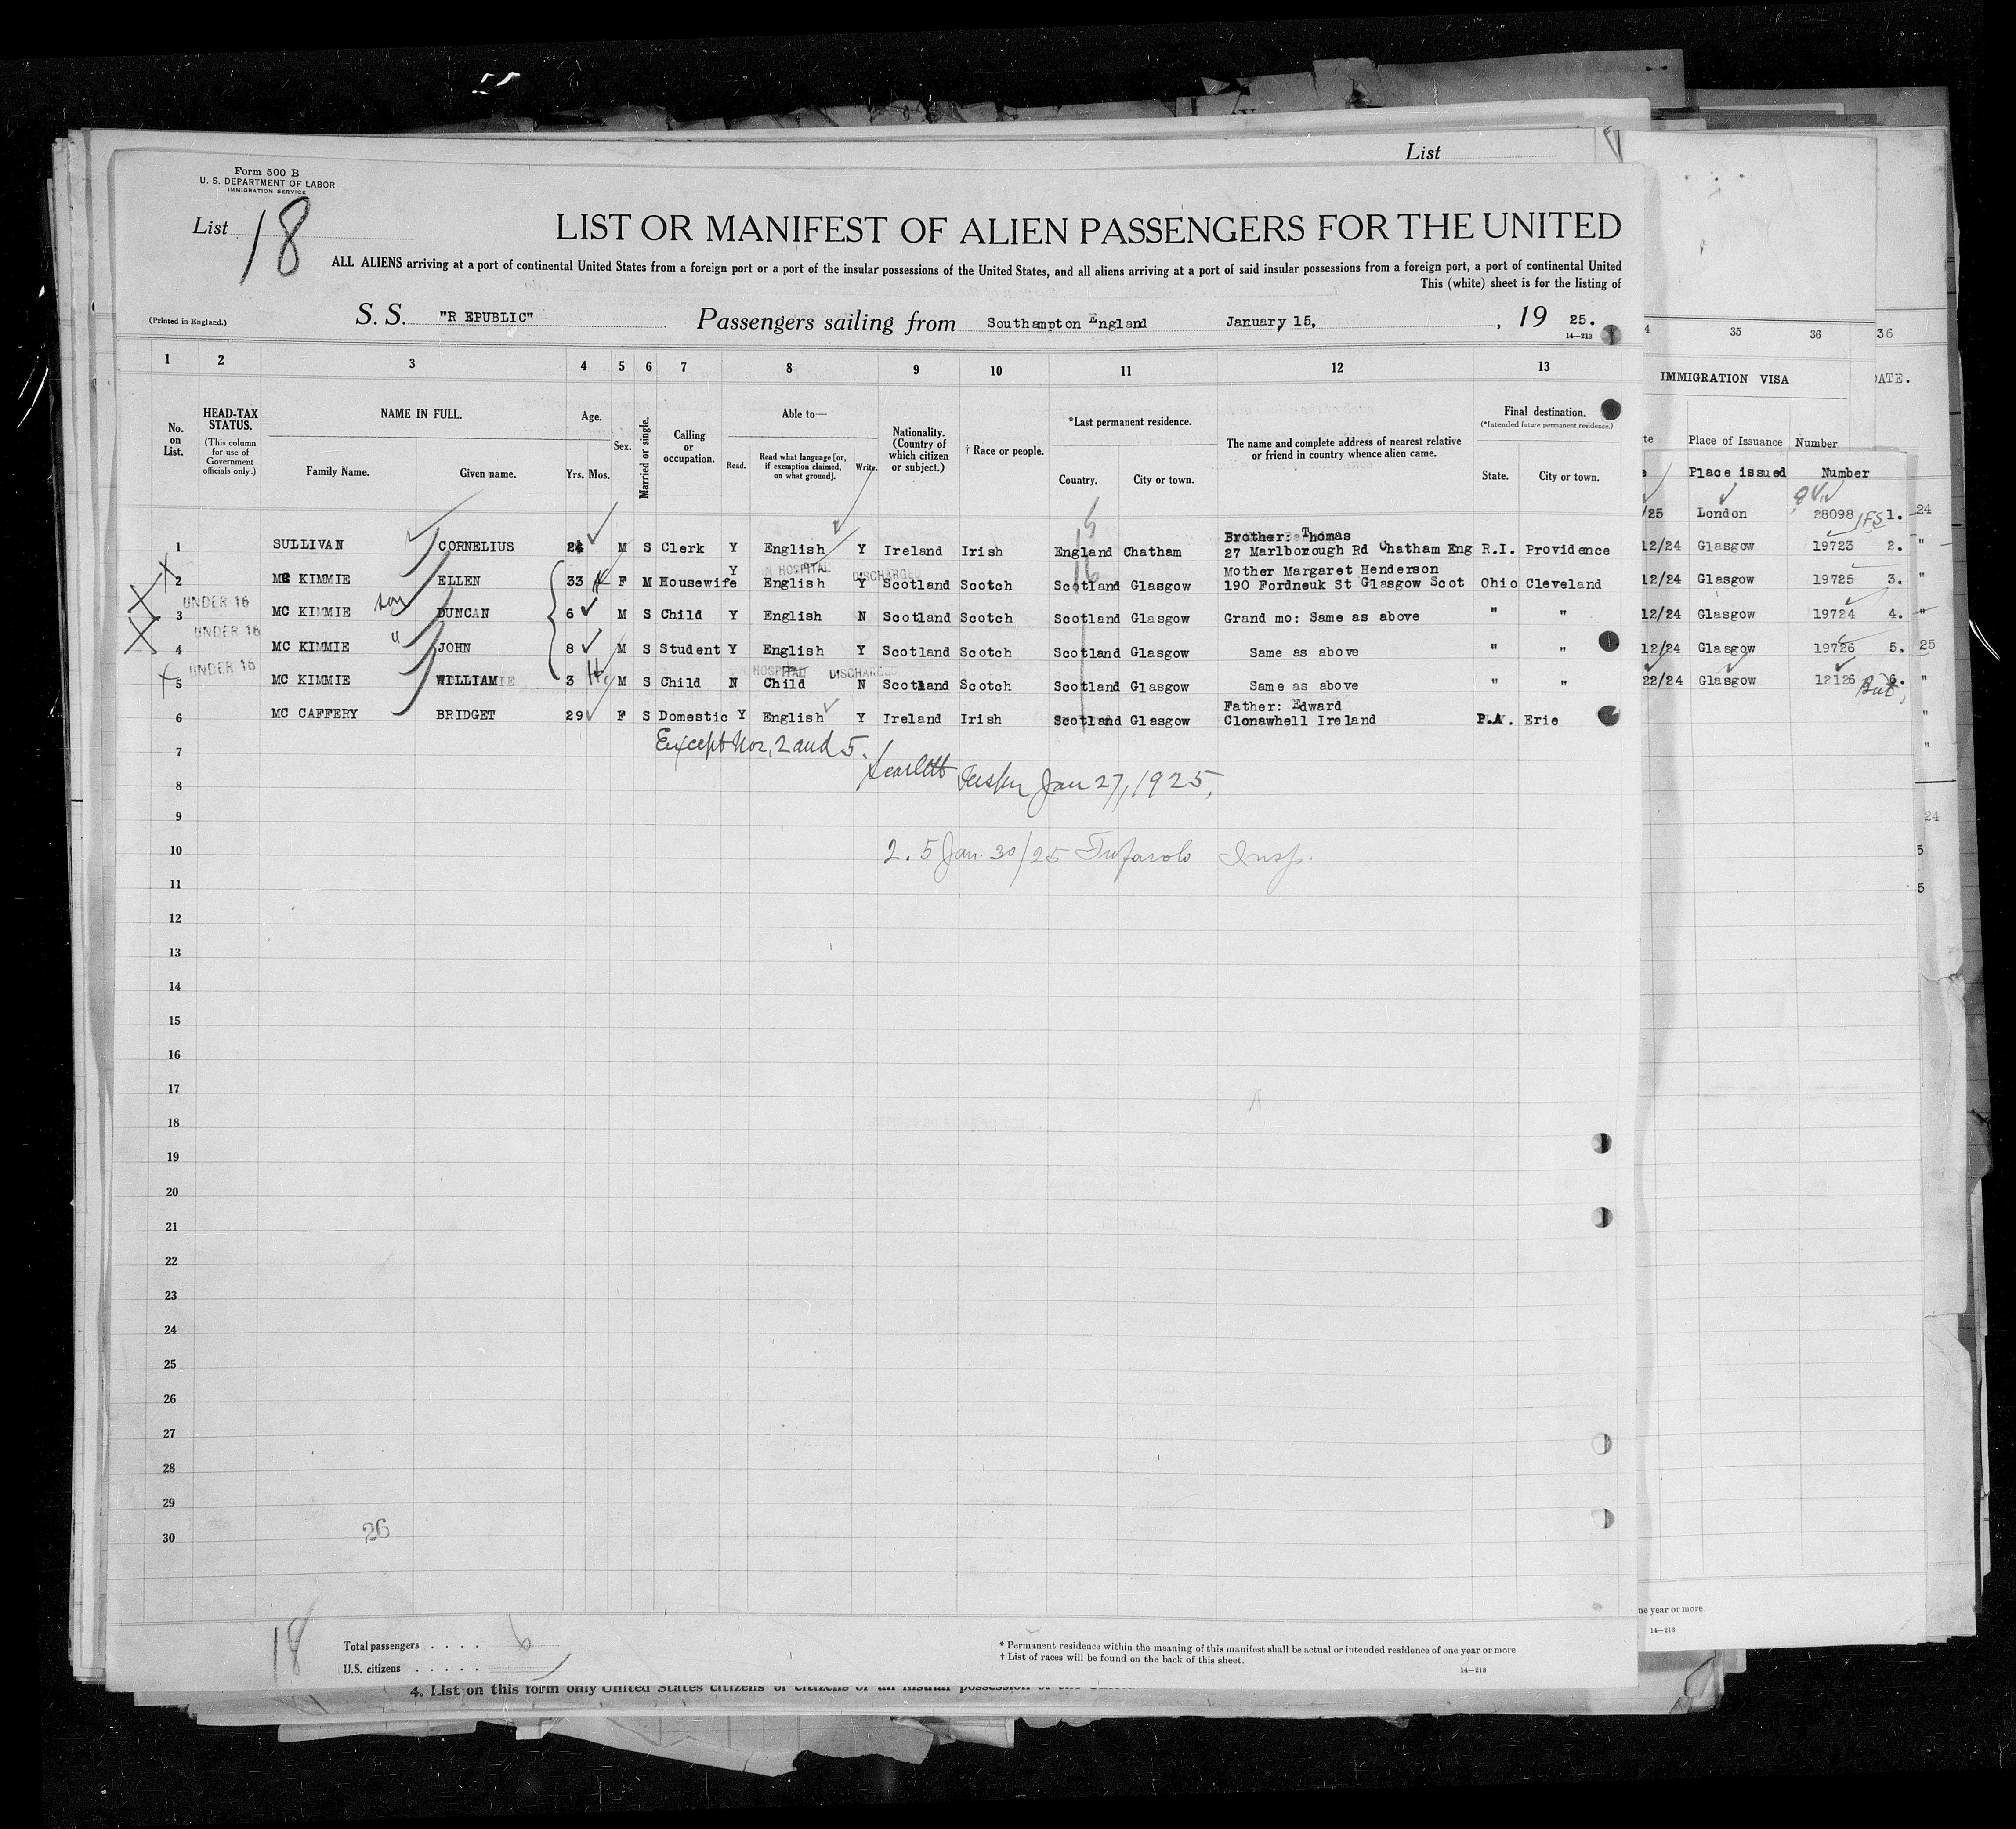 List
Form 500 B
U. S. DEPARTMENT OF LABOR
IMMIGRATION SERVICE
List 18
LIST OR MANIFEST OF ALIEN PASSENGERS FOR THE UNITED
ALL ALIENS arriving at a port of continental United States from a foreign port or a port of the insular possessions of the United States, and all aliens arriving at a port of said insular possessions from a foreign port, a port of continental United
This (white) sheet is for the listing of
(Printed in England.)
S. S. "R EPUBLIC" Passengers sailing from Southampton England January 15, , 19 25.
14—213
1 2 3 4 5 6 7 8 9 10 11 12 13
35 36 36
No. on List.
HEAD-TAX STATUS.
(This column for use of Government officials only.)
NAME IN FULL.
Family Name. Given name.
Age.
Yrs. Mos.
Sex.
Married or single.
Calling or occupation.
Able to—
Read. Read what language [or, if exemption claimed, on what ground]. Write.
Nationality. (Country of which citizen or subject.)
† Race or people.
*Last permanent residence.
Country. City or town.
The name and complete address of nearest relative or friend in country whence alien came.
Final destination.
(*Intended future permanent residence.)
State. City or town.
IMMIGRATION VISA
DATE.
Place of Issuance Number
Place issued Number
/25 London 28098 1. 24
12/24 Glasgow 19723 2. "
12/24 Glasgow 19725 3. "
12/24 Glasgow 19724 4. "
12/24 Glasgow 19726 5. 25
22/24 Glasgow 12126 6. "
1 SULLIVAN CORNELIUS 24 M S Clerk Y English Y Ireland Irish England Chatham Brother: Thomas
27 Marlborough Rd Chatham Eng R.I. Providence
IN HOSPITAL DISCHARGED
2 MC KIMMIE ELLEN 33 F M Housewife Y English Y Scotland Scotch Scotland Glasgow Mother Margaret Henderson
190 Fordneuk St Glasgow Scot Ohio Cleveland
UNDER 16
3 MC KIMMIE son DUNCAN 6 M S Child Y English N Scotland Scotch Scotland Glasgow Grand mo: Same as above " "
UNDER 16
4 MC KIMMIE " JOHN 8 M S Student Y English Y Scotland Scotch Scotland Glasgow Same as above " "
UNDER 16
HOSPITAL DISCHARGED
5 MC KIMMIE WILLIAM 3 M S Child N Child N Scotland Scotch Scotland Glasgow Same as above " "
6 MC CAFFERY BRIDGET 29 F S Domestic Y English Y Ireland Irish Scotland Glasgow Father: Edward
Clonawhell Ireland P.A. Erie
Except Nos, 2 and 5.
7
Jan 27, 1925.
8
9
10
2. 5 Jan. 30/25 Insp.
11
12
13
14
15
16
17
18
19
20
21
22
23
24
25
26
27
28
29
30
26
18
Total passengers . . . . 6
U.S. citizens . . . . .
* Permanent residence within the meaning of this manifest shall be actual or intended residence of one year or more.
† List of races will be found on the back of this sheet.
14—213
ne year or more
14—213
4. List on this form only United States citizens or citizens of an insular possession of the